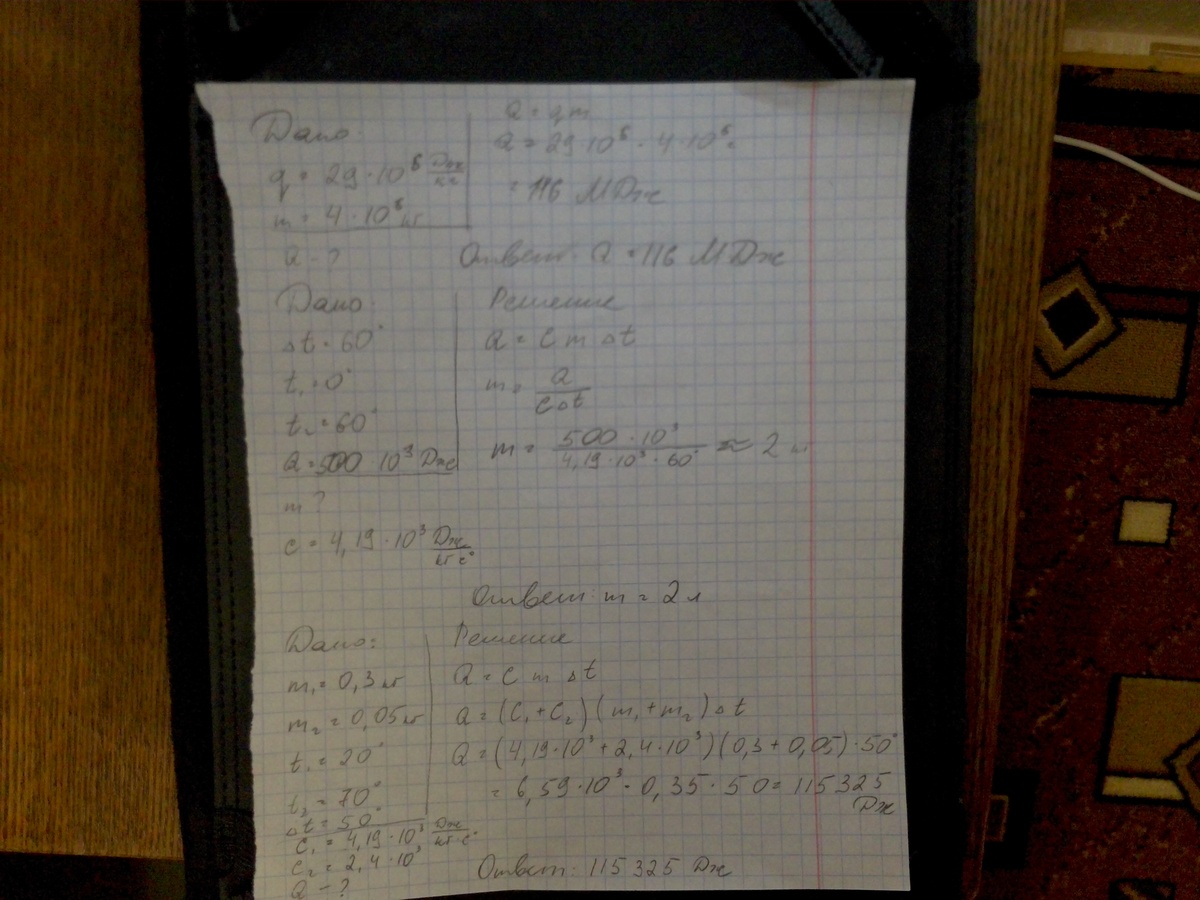 Дано:
q = 29·10⁶ Дж/кг
m = 4·10⁶ кг
Q - ?
Q = qm
Q = 29·10⁶ · 4·10⁶ =
= 116 МДж
Ответ: Q = 116 МДж
Дано:
Δt = 60°
t₁ = 0°
t₂ = 60°
Q = 500 · 10³ Дж
m ?
c = 4,19 · 10³ Дж/кг с°
Решение
Q = C m Δt
m = Q/cΔt
m = 500 · 10³/4,19 · 10³ · 60° ≈ 2 л
Ответ: m = 2 л
Дано:
m₁ = 0,3 кг
m₂ = 0,05 кг
t₁ = 20°
t₂ = 70°
Δt = 50°
c₁ = 4,19 · 10³ Дж/кг·с°
c₂ = 2,4 · 10³
Q - ?
Решение
Q = C m Δt
Q = (C₁ + C₂) (m₁ + m₂) Δt
Q = (4,19·10³ + 2,4·10³) (0,3 + 0,05) · 50°
= 6,59·10³ · 0,35 · 50 = 115325
Дж
Ответ: 115325 Дж